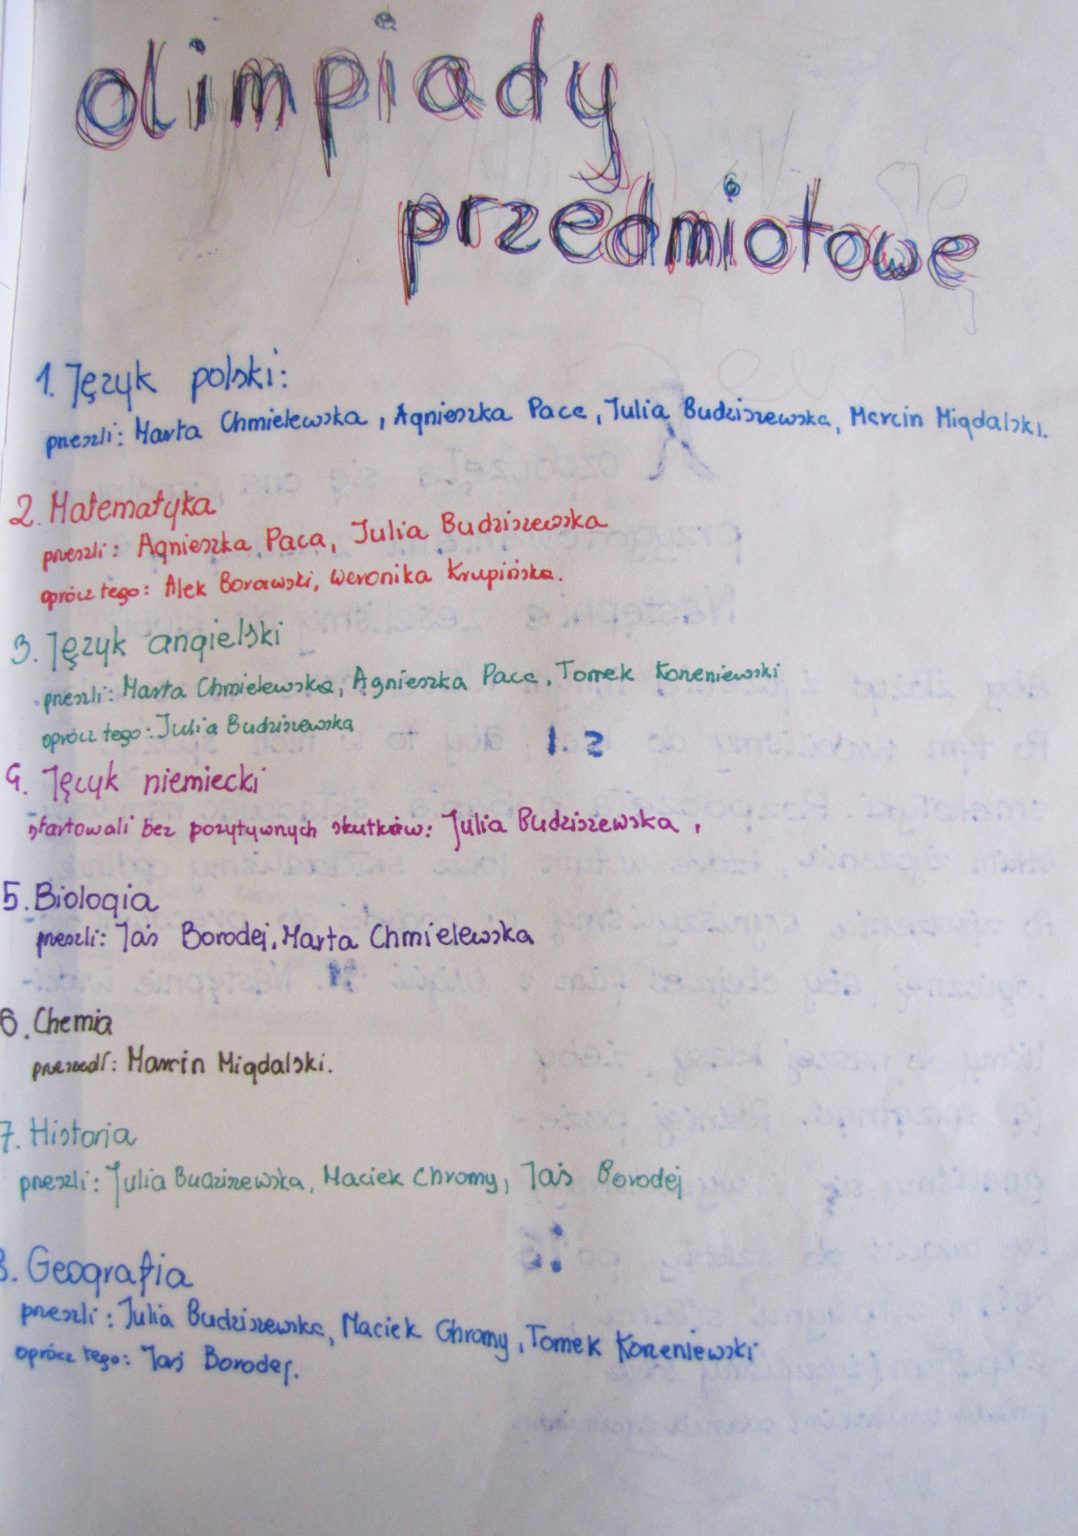 olimpiady
przedmiotowe
1. Język polski:
przeszli: Marta Chmielewska, Agnieszka Paca, Julia Budziszewska, Marcin Migdalski.
2. Matematyka
przeszli: Agnieszka Paca, Julia Budziszewska
oprócz tego: Alek Borawski, Weronika Krupińska.
3. Język angielski
przeszli: Marta Chmielewska, Agnieszka Paca, Tomek Korzeniewski
oprócz tego: Julia Budziszewska
4. Język niemiecki
startowali bez pozytywnych skutków: Julia Budziszewska,
5. Biologia
przeszli: Jaś Borodej, Marta Chmielewska
6. Chemia
przeszedł: Marcin Migdalski.
7. Historia
przeszli: Julia Budziszewska, Maciek Chromy, Jaś Borodej
8. Geografia
przeszli: Julia Budziszewska, Maciek Chromy, Tomek Korzeniewski
oprócz tego: Jaś Borodej.